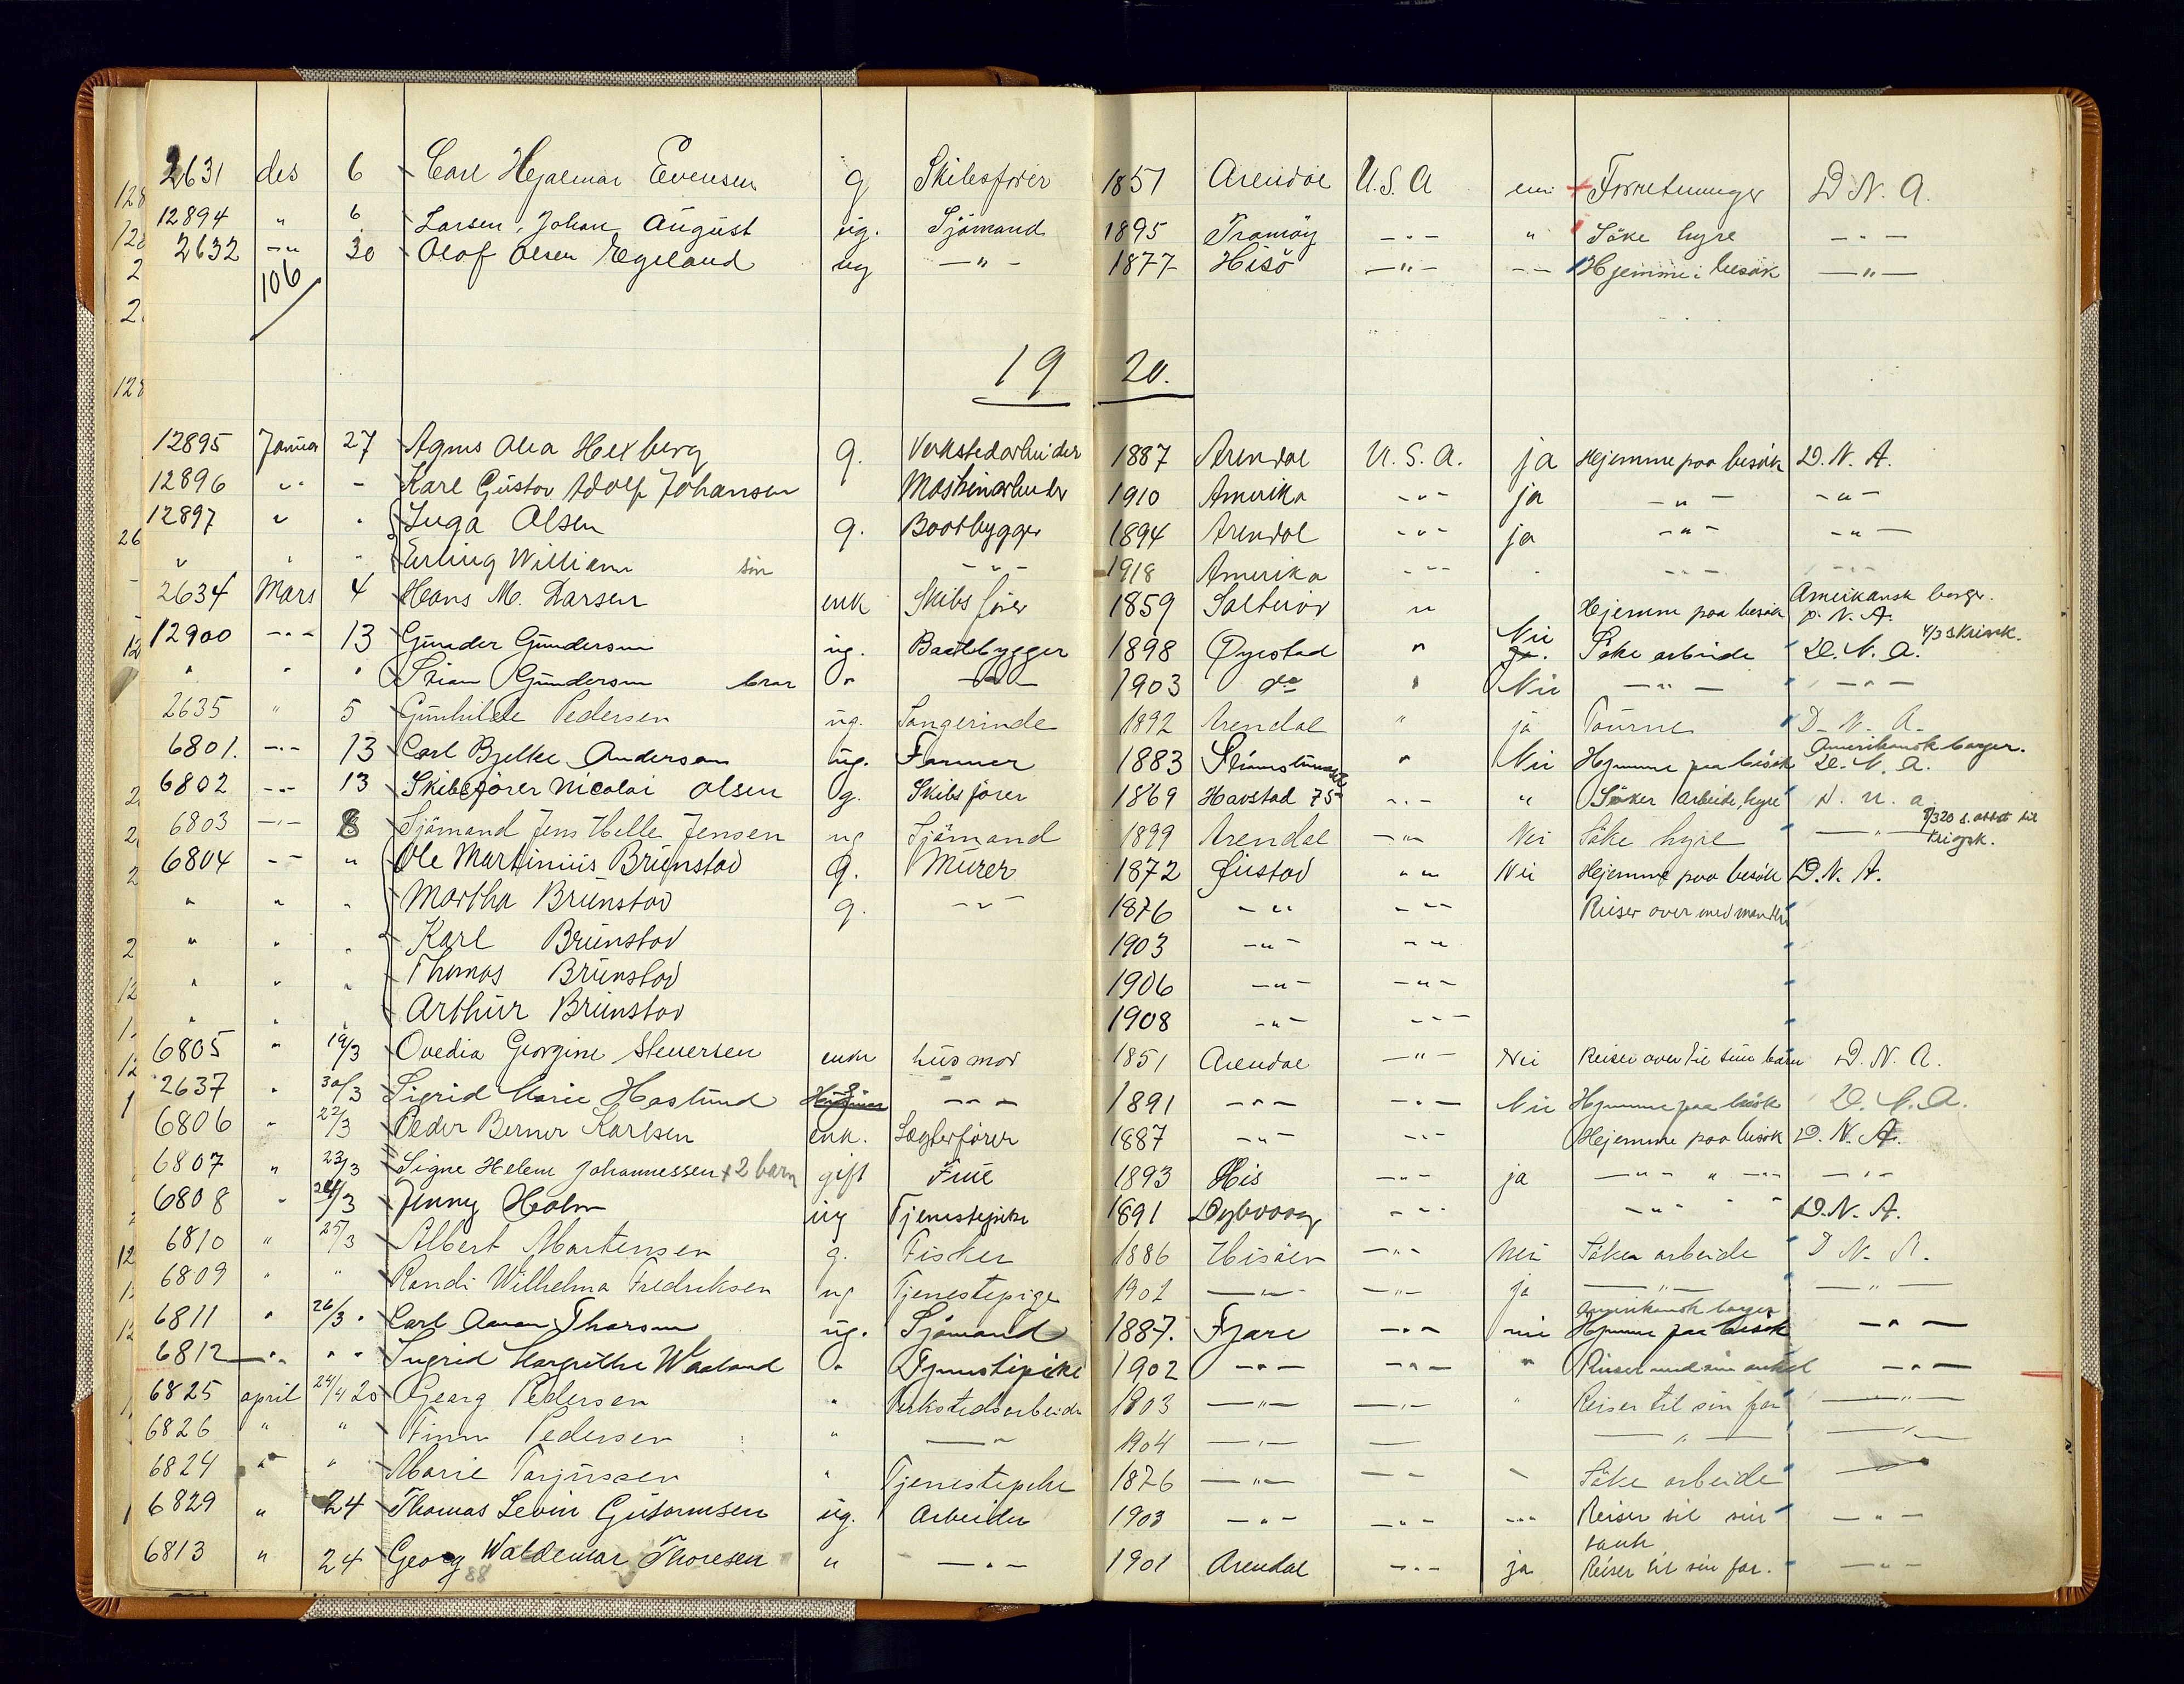 2631 des 6 Carl Hjalmar Evensen g Skibsfører 1851 Arendal U.S.A nei + Forretninger D.N.A.
12894 " 6 Larsen, Johan August ug. Sjömand 1895 Tromöy -"- " Söke hyre -"-
2632 -"- 30 Olaf Olsen Egeland ug -"- 1877 Hisö -"- -- Hjemme i besök -"-
106
19 20.
12895 Januar 27 Agnes Olea Hexberg g. Verkstedarbeider 1887 Arendal U.S.A. ja Hjemme paa besök D.N.A.
12896 -"- - Karl Gustav Adolf Johansen Maskinarbeider 1910 Amerika -"- ja -"- -"-
12897 " " Inga Olsen g. Baatbygger 1894 Arendal -"- ja -"- -"-
" " " Erling William sön -"- 1918 Amerika -"- - -"- -"-
2634 Mars 4 Hans M. Larsen enk Skibsfører 1859 Salterød " Hjemme paa besök Amerikansk borger. D.N.A.
12900 -"- 13 Gunder Gundersen ug. Baatbygger 1898 Øyestad " Nei ja. Söke arbeide D.N.A. 4/3 s.krigsk.
" " " Stian Gundersen bror " -"- 1903 do " Nei -"- -"-
2635 " 5 Gunhilde Pedersen ug. Sangerinde 1892 Arendal " ja Tourne D.N.A.
6801. -"- 13 Carl Bjelke Andersen ug. Farmer 1883 " Nei Hjemme paa besök Amerikansk borger. D.N.A.
6802 -"- 13 Skibsfører Nicolai Olsen g. Skibsfører 1869 Havstad 75 -"- " Söker arbeide, hyre D.N.A.
6803 -"- 8 Sjömand Jens Helle Jensen ug Sjömand 1899 Arendal -"- Nei Söke hyre -"- 9/3 20 s. attst til krigsk.
6804 -"- " Ole Martinius Brunstad g. Murer 1872 Öiestad -"- Nei Hjemme paa besök D.N.A.
" " " Martha Brunstad g. -"- 1876 -"- -"- Reiser over med manden
" " " Karl Brunstad 1903 -"- -"-
" " " Thomas Brunstad 1906 -"- -"-
" " " Arthur Brunstad 1908 -"- -"-
6805 " 19/3 Ovedia Georgine Steversen enke husmor 1851 Arendal -"- Nei Reiser over til sine barn D.N.A.
2637 " 30/3 Sigrid Marie Haslund g -"- 1891 -"- -"- Nei Hjemme paa besök D.N.A.
6806 " 22/3 Peder Berner Karlsen enk. Lægterfører 1887 -"- -"- Hjemme paa besök D.N.A.
6807 " 23/3 Signe Helene Johannessen + 2 barn gift Frue 1893 His -"- ja -"- " -"- -"-
6808 " 24/3 Jenny Holm ug Tjenestepike 1891 Dybvaag -"- -"- - D.N.A.
6810 " 25/3 Albert Martensen g. Fisker 1886 Hisöen -"- nei Söker arbeide D.N.A.
6809 " " Randi Wilhelma Fredriksen ug Tjenestepige 1902 -"- -"- ja -"- -"-
6811 " 26/3 " Carl Aanon Thorsen ug. Sjömand 1887. Fjære -"- nei Amerikansk borger Hjemme paa besök -"-
6812 -"- " " Ingrid Margrethe Waaland " Tjenestepike 1902 -"- -"- " Reiser med sin onkel -"-
6825 april 24/4 20 Georg Pedersen " Verkstedsarbeider 1903 -"- -"- " Reiser til sin far -"-
6826 " " Finn Pedersen " -"- 1904 -"- -- -"- -"-
6824 " " Marie Torjussen " Tjenestepike 1876 -"- -- - Söke arbeide -"-
6829 " 24 Thomas Levin Guttormsen ug. Arbeider 1903 -"- -"- -"- Reiser til sin tante -"-
6813 " 24 Georg Waldemar Thoresen " -"- 1901 Arendal -"- ja Reiser til sin far. -"-
88